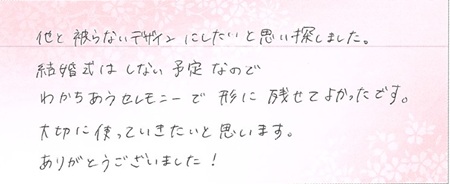 他と被らないデザインにしたいと思い探しました。
結婚式はしない予定なので
わかちあうセレモニーで形に残せてよかったです。
大切に使っていきたいと思います。
ありがとうございました！